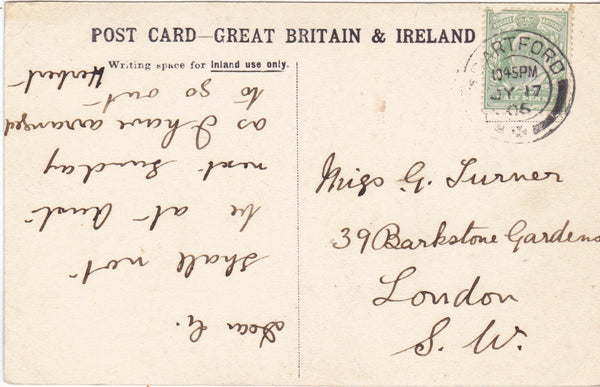 POST CARD—GREAT BRITAIN & IRELAND
Writing space for Inland use only.
DARTFORD
10 45PM
JY 17
Dear G.
shall not
be at Aunt
next Sunday
as I have arranged
to go out
Herbert
Miss G. Turner
39 Barkstone Gardens
London
S. W.